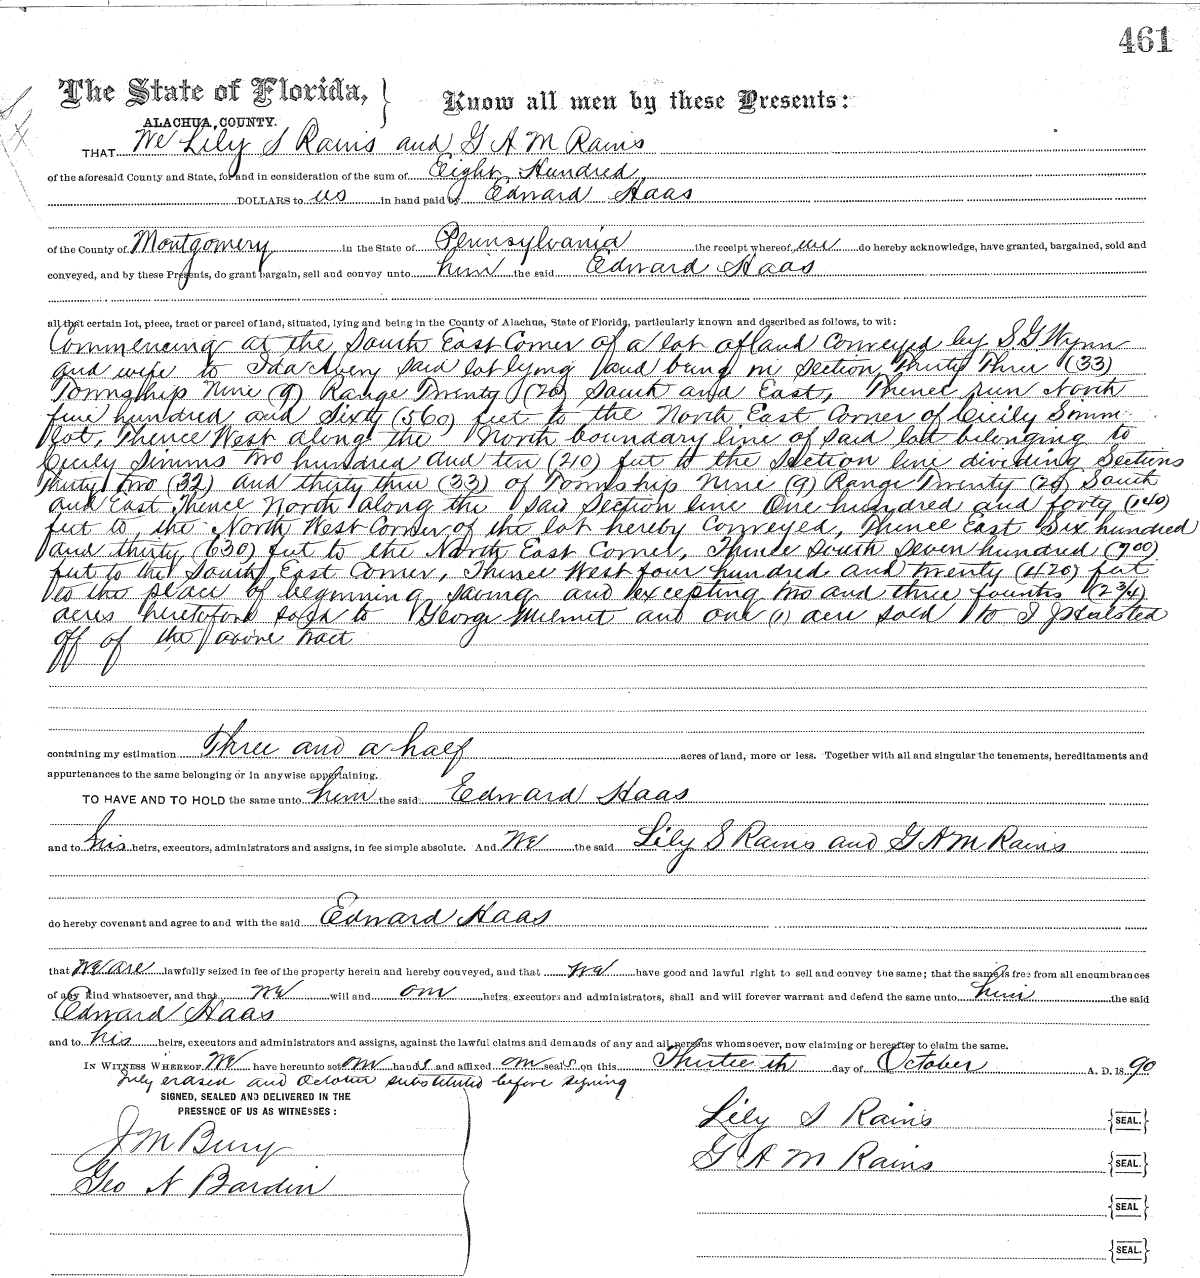 461
The State of Florida, } Know all men by these Presents:
ALACHUA, COUNTY.
THAT We Lily S Rains and G A M Rains
of the aforesaid County and State, for and in consideration of the sum of Eight Hundred
DOLLARS to us in hand paid by Edward Haas
of the County of Montgomery in the State of Pennsylvania the receipt whereof we do hereby acknowledge, have granted, bargained, sold and
conveyed, and by these Presents, do grant bargain, sell and convey unto him the said Edward Haas
all that certain lot, piece, tract or parcel of land, situated, lying and being in the County of Alachua, State of Florida, particularly known and described as follows, to wit:
Commencing at the South East Corner of a lot of land Conveyed by S G Wynn
and wife to Ida Avery said lot lying and being in Section Thirty Three (33)
Township Nine (9) Range Twenty (20) South and East, Thence run North
five hundred and Sixty (560) feet to the North East Corner of Cicily Simms
lot, Thence West along the North boundary line of said lot belonging to
Cicily Simms two hundred and ten (210) feet to the Section line dividing Sections
Thirty two (32) and thirty three (33) of Township Nine (9) Range Twenty (20) South
and East Thence North along the said Section line One hundred and forty (140)
feet to the North West Corner of the lot hereby Conveyed, Thence East Six hundred
and thirty (630) feet to the North East Corner, Thence South Seven hundred (700)
feet to the South East Corner, Thence West four hundred and twenty (420) feet
to the place of beginning saving and excepting two and three fourths (2 3/4)
acres heretofore sold to George and one (1) acre sold to I J Halsted
off of the above tract
containing my estimation Three and a half acres of land, more or less. Together with all and singular the tenements, hereditaments and
appurtenances to the same belonging or in anywise appertaining.
TO HAVE AND TO HOLD the same unto him the said Edward Haas
and to his heirs, executors, administrators and assigns, in fee simple absolute. And We the said Lily S Rains and G A M Rains
do hereby covenant and agree to and with the said Edward Haas
that We are lawfully seized in fee of the property herein and hereby conveyed, and that we have good and lawful right to sell and convey the same; that the same is free from all encumbrances
of any kind whatsoever, and that we will and our heirs executors and administrators, shall and will forever warrant and defend the same unto him the said
Edward Haas
and to his heirs, executors and administrators and assigns, against the lawful claims and demands of any and all persons whomsoever, now claiming or hereafter to claim the same.
IN WITNESS WHEREOF We have hereunto set our hands and affixed our seals on this Thirteenth day of October A. D. 1890
July erased and October substituted before signing
SIGNED, SEALED AND DELIVERED IN THE
PRESENCE OF US AS WITNESSES:
Lily S Rains {SEAL.}
J M Bury
G A M Rains {SEAL.}
Geo N Bardin
{SEAL}
{SEAL.}